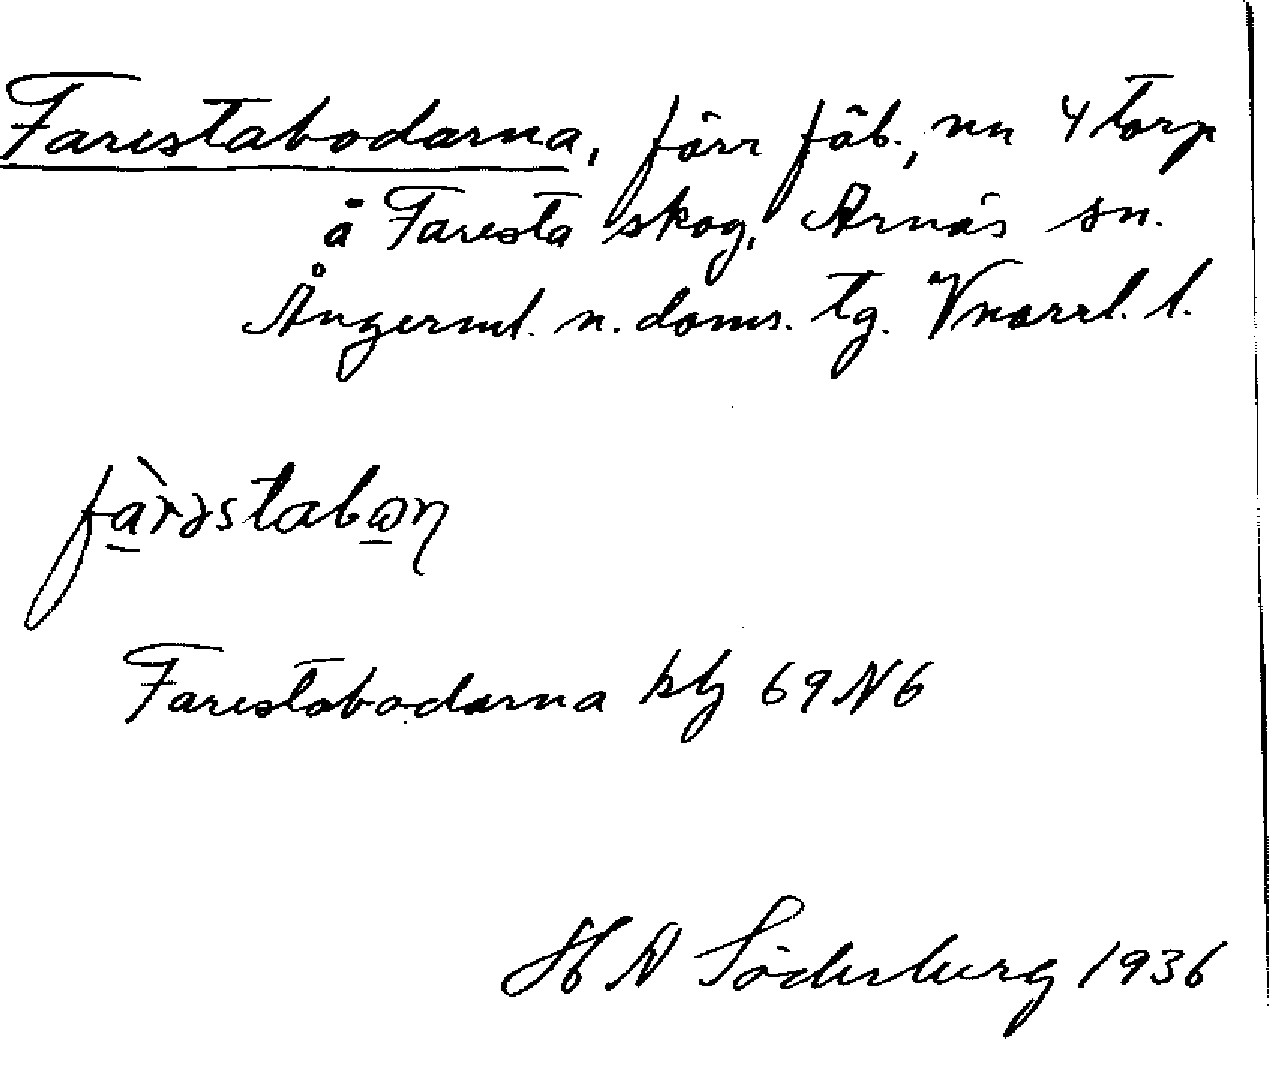 Farestabodarna, förr fäb., nu 4 torp
å Faresta skog, Arnäs sn.
Ångerml. n. doms. tg. Vnorrl. l.
fàrəstabωn
Farestabodarna kbl 69 N 6
H A Söderberg 1936